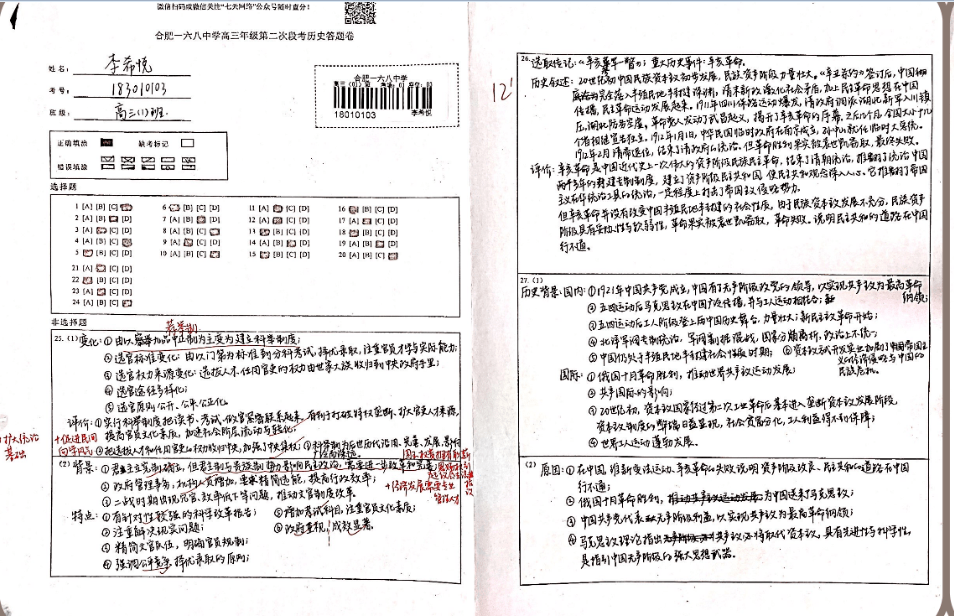 微信扫码或微信关注"七天网络"公众号随时查分!
合肥一六八中学高三年级第二次段考历史答题卷
姓名: 李希悦
考号: 183010103
班级: 高三(1)班
合肥一六八中学
18010103 李希悦
正确填涂 缺考标记
错误填涂
选择题
1 [A] [B] [C]
6 [B] [C] [D]
11 [A] [C] [D]
16 [B] [C] [D]
2 [A] [B] [D]
7 [A] [B] [D]
12 [A] [C] [D]
17 [A] [C] [D]
3 [A] [C] [D]
8 [A] [B] [C]
13 [B] [C] [D]
18 [B] [C] [D]
4 [A] [B] [C]
9 [A] [C] [D]
14 [A] [B] [D]
19 [A] [B] [D]
5 [B] [C] [D]
10 [A] [B] [C]
15 [B] [C] [D]
20 [A] [B] [C]
21 [A] [C] [D]
22 [B] [C] [D]
23 [A] [C] [D]
24 [A] [B] [C]
非选择题
荐举制
25. (1) 变化: ①由以九品中正制为主变为建立科举制度;
②选官标准变化: 由以门第为标准到分科考试、择优录取, 注重官员才学与实际能力;
③选官权力来源变化: 选拔人才任用官吏的权力由世家大族收归到中央政府手里;
④选官途径多样化;
⑤选官原则公开、公平公正化。
评价: ①实行科举制度把读书、考试、做官紧密联系起来, 有利于打破特权垄断、扩大官吏人才来源,
提高官员文化素质, 加速社会阶层流动与转化;
②把选拔人才和任用官吏的权力收归中央, 加强了中央集权;
③科举制为后世历代沿用、完善、发展, 影响
扩大统治
基础
+促进民间
向学风气
(2) 背景: ①君主立宪制确立,
②政府管理事务、机构人员增加, 要求精简选能, 提高行政效率;
③二战时期出现冗官、效率低下等问题, 推动文官制度改革。
+经济发展需要专业
管理人才
特点: ①有针对性较强的科学改革报告;
②注重解决现实问题;
③
④精简文官队伍, 明确官员规制;
⑤增加考试科目, 注重官员文化素质;
⑥强调公平竞争、择优录取的原则;
⑧政府重视, 成效显著
12'
26. 选取传记: 《辛亥革 》; 重大历史事件: 辛亥革命。
历史叙述: 20世纪初中国民族资本主义初步发展, 民族资产阶级力量壮大。《辛丑条约》签订后, 中国
完全沦入半殖民地半封建深渊, 清末新政激化社会矛盾, 加上民主革命思想在中国
传播, 民主革命运动发展起来。1911年四川保路运动爆发, 清政府调派湖北新军入川镇
压, 湖北防务空虚。革命党人发动了武昌起义, 揭开了辛亥革命的序幕, 之后1个月, 全国大小十几
个省相继宣告独立。1912年1月1日, 中华民国临时政府在南京成立, 孙中山就任临时大总统。
1912年2月清帝退位, 结束了清政府的统治。但革命胜利果实被袁世凯窃取, 最终失败。
评价: 辛亥革命是中国近代史上一次伟大的资产阶级民族民主革命, 结束了清朝统治, 推翻了统治中国
两千多年的封建专制制度, 建立了资产阶级民主共和国, 使民主共和观念深入人心。它推翻了帝国
主义在华统治工具的统治, 一定程度上打击了帝国主义侵略势力。
但辛亥革命并没有改变中国半殖民地半封建的社会性质, 由于民族资本主义发展不充分, 民族资产
阶级具有妥协性与软弱性, 革命果实被袁世凯窃取, 革命失败。说明民主共和的道路在中国
行不通。
27. (1)
历史背景: 国内: ①1921年中国共产党成立, 中国有了无产阶级政党的领导, 以实现共产主义为最高革命
纲领;
②五四运动后马克思主义在中国广泛传播, 并与工人运动相结合;
③五四运动后工人阶级登上历史舞台, 力量壮大; 新民主主义革命开始;
④北洋军阀专制统治, 军阀割据混战, 国家分崩离析, 政治上不统一;
⑤中国仍处于半殖民地半封建社会性质时期;
国际: ①俄国十月革命胜利, 推动世界共产主义运动发展;
②共产国际的影响;
③20世纪初, 资本主义国家经过第二次工业革命后基本进入垄断资本主义发展阶段,
资本主义制度的弊端日益显现, 社会贫富分化, 工人利益得不到保障;
④世界工人运动蓬勃发展。
(2) 原因: ①在中国, 维新变法运动、辛亥革命的失败说明资产阶级改良、民主共和的道路在中国
行不通;
②俄国十月革命胜利, 为中国送来马克思主义;
③中国共产党代表无产阶级利益, 以实现共产主义为最高革命纲领;
④马克思主义理论指出共产主义必将取代资本主义, 具有先进性与科学性,
是指引中国无产阶级的强大思想武器。